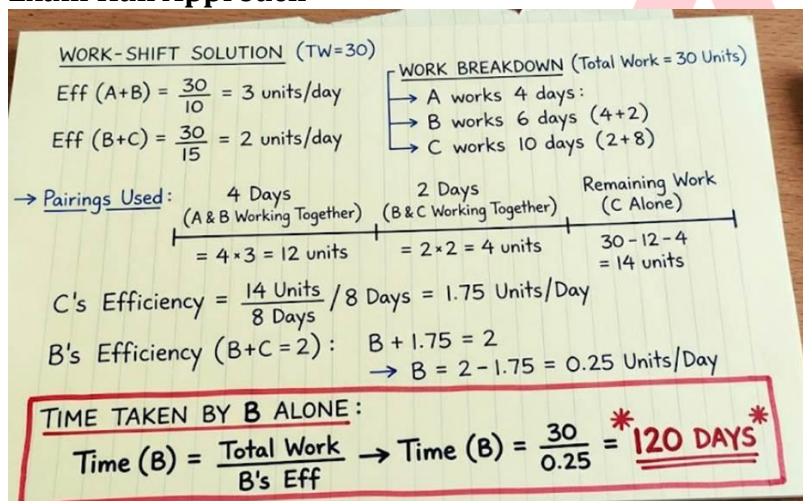 WORK-SHIFT SOLUTION (TW=30)
Eff (A+B) = 30/10 = 3 units/day
Eff (B+C) = 30/15 = 2 units/day
WORK BREAKDOWN (Total Work = 30 Units)
→ A works 4 days:
→ B works 6 days (4+2)
→ C works 10 days (2+8)
→ Pairings Used:
4 Days
(A & B Working Together)
= 4×3 = 12 units
2 Days
(B & C Working Together)
= 2×2 = 4 units
Remaining Work
(C Alone)
30-12-4
= 14 units
C's Efficiency = 14 Units/8 Days / 8 Days = 1.75 Units/Day
B's Efficiency (B+C=2): B + 1.75 = 2
→ B = 2-1.75 = 0.25 Units/Day
TIME TAKEN BY B ALONE:
Time (B) = Total Work/B's Eff → Time (B) = 30/0.25 = *120 DAYS*